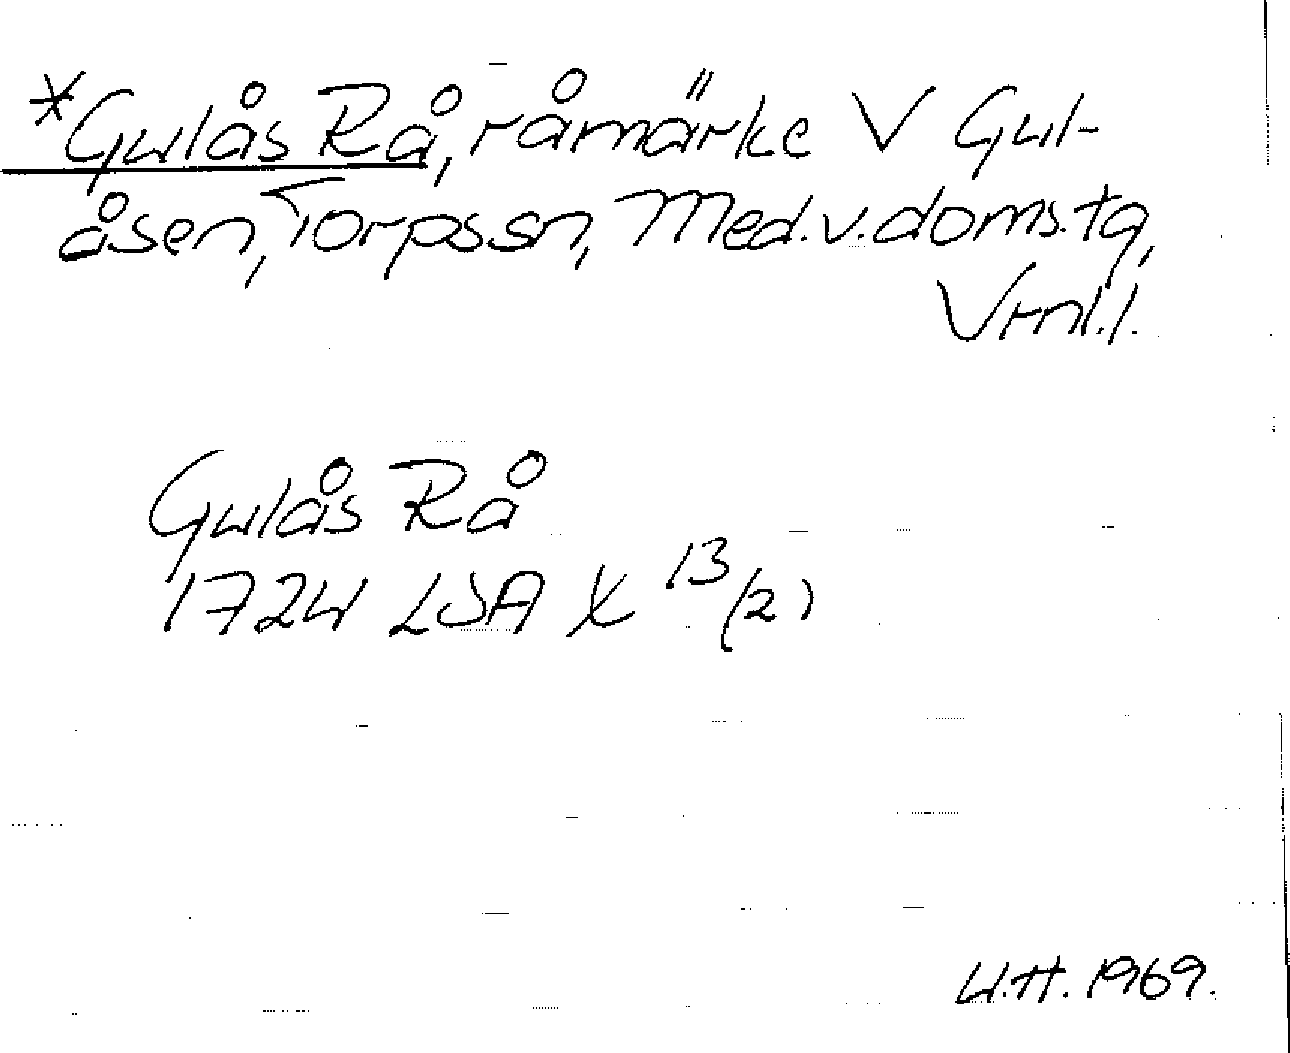 *Gulås Rå, råmärke V Gul-
åsen, Torps sn, Med. v. doms. tg,
Vrnl. l.
Gulås Rå
1724 LSA X 13/(2)
U.H. 1969.